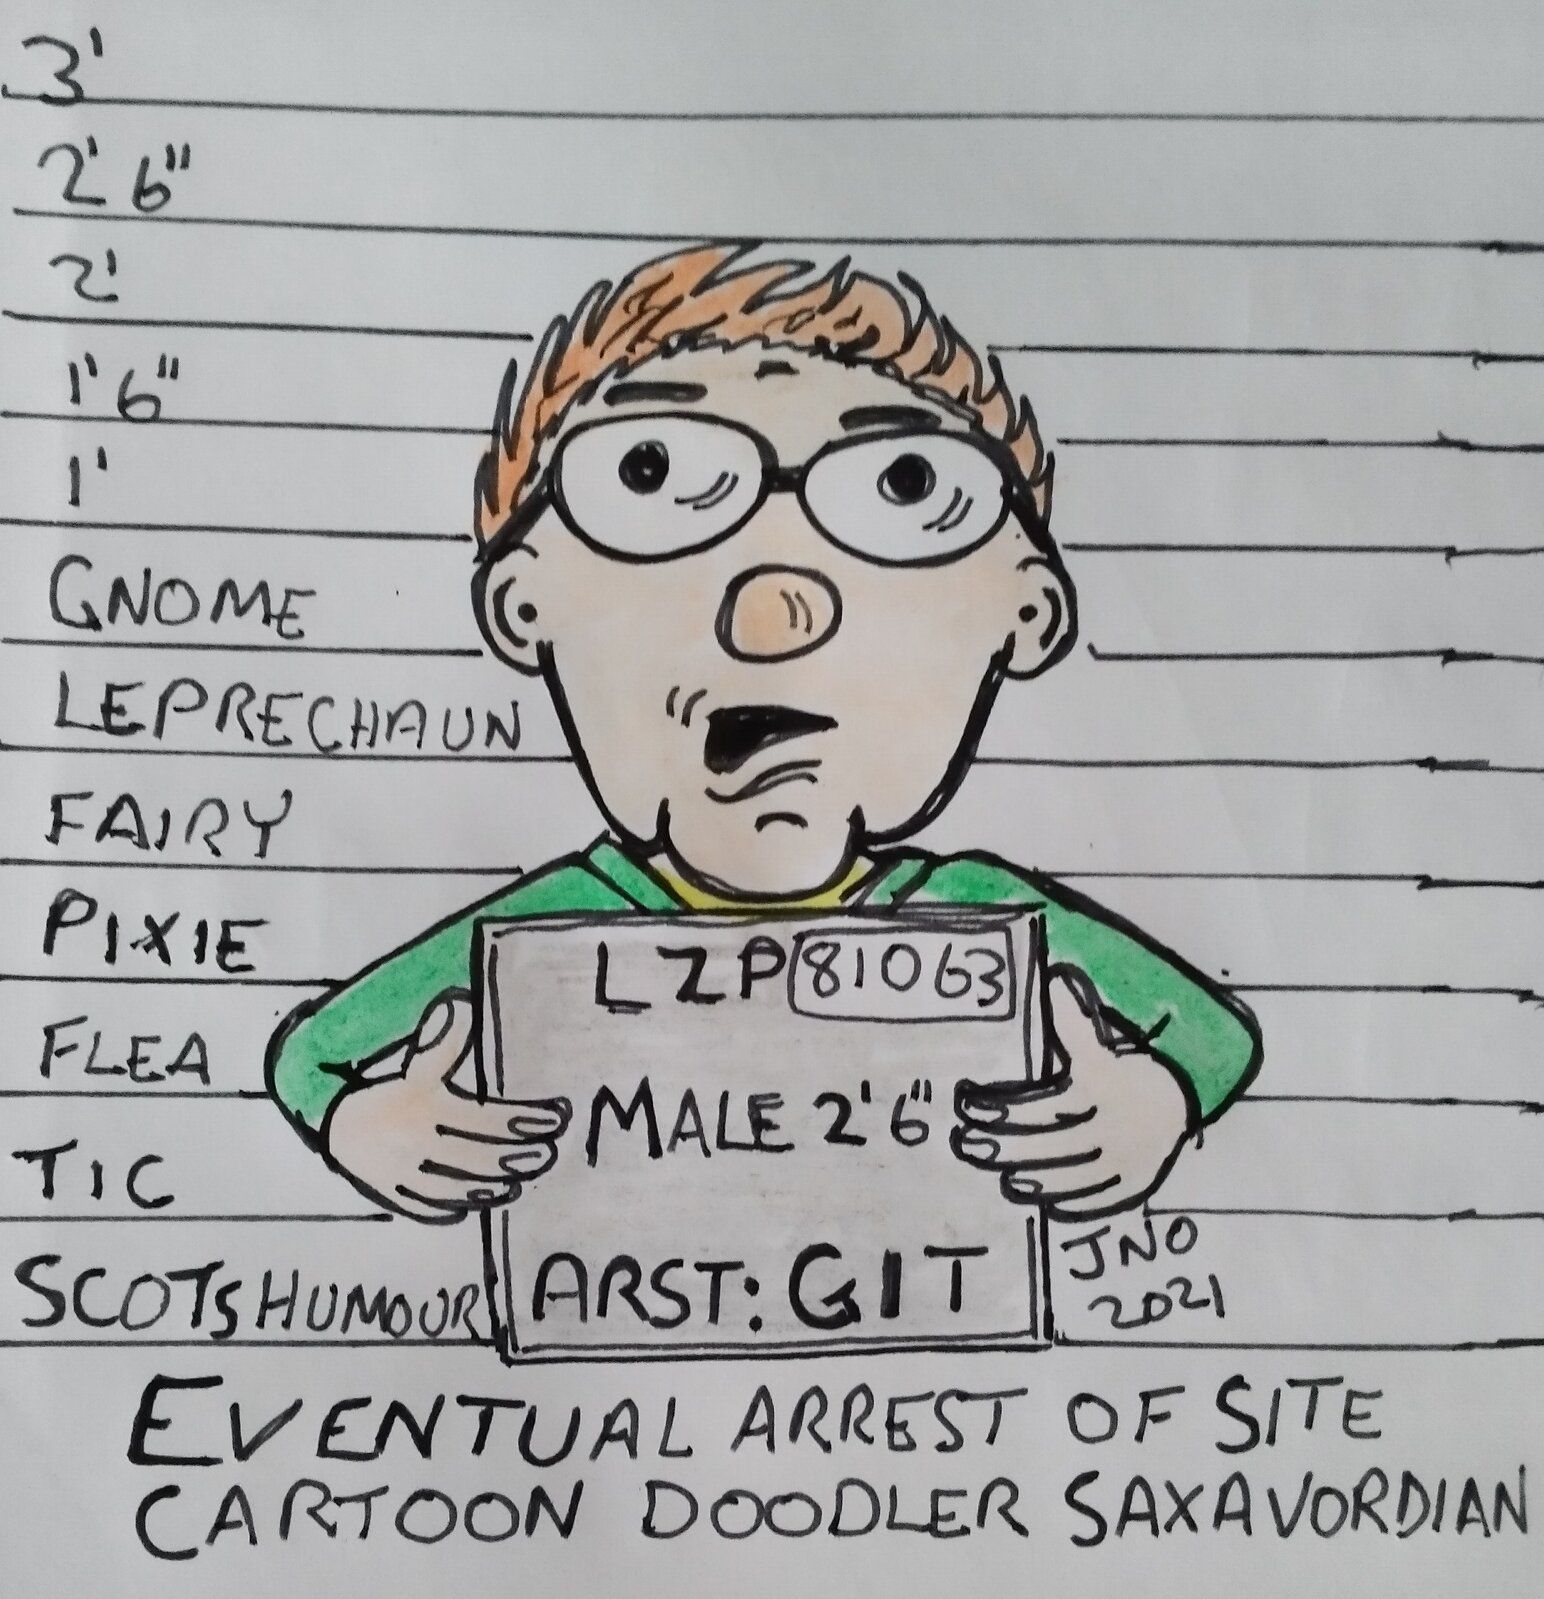 3'
2' 6"
2'
1' 6"
1'
GNOME
LEPRECHAUN
FAIRY
PIXIE
FLEA
TIC
SCOTS HUMOUR
LZP 81063
MALE 2' 6"
ARST: GIT
JNO
2021
EVENTUAL ARREST OF SITE
CARTOON DOODLER SAXAVORDIAN